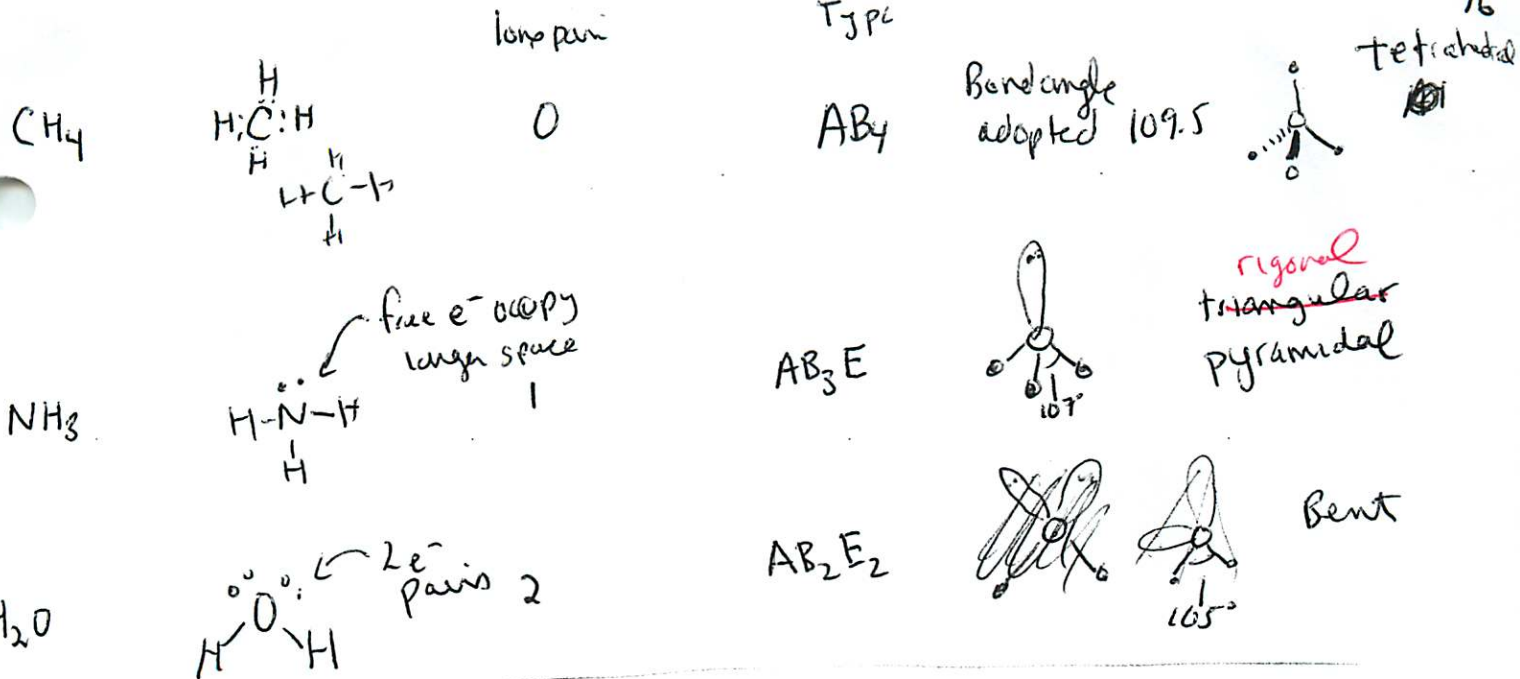 lone pair
Type
16
CH4
H
H:C:H
H
H
H-C-H
H
0
AB4
Bond angle
adopted 109.5
tetrahedral
NH3
free e- occupy
larger space
H-N-H
H
1
AB3E
107°
rigonal
triangular
pyramidal
H2O
O
H H
2e-
pairs 2
AB2E2
105°
Bent